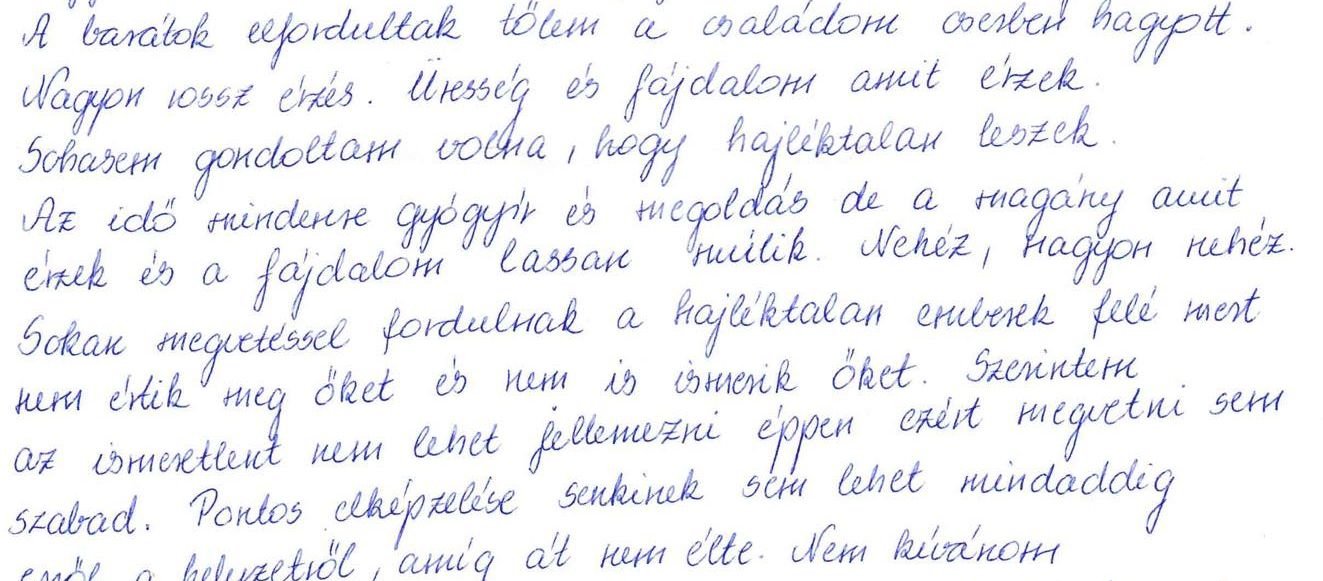 A barátok elfordultak tőlem a családom cserben hagyott.
Nagyon rossz érzés. Üresség és fájdalom amit érzek.
Sohasem gondoltam volna, hogy hajléktalan leszek.
Az idő mindenre gyógyír és megoldás de a magány amit
érzek és a fájdalom lassan múlik. Nehéz, nagyon nehéz.
Sokan megvetéssel fordulnak a hajléktalan emberek felé mert
nem értik meg őket és nem is ismerik őket. Szerintem
az ismeretlent nem lehet jellemezni éppen ezért megvetni sem
szabad. Pontos elképzelése senkinek sem lehet mindaddig
erről a helyzetről, amíg át nem élte. Nem kívánom